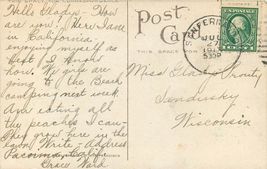 Well Gladys. How
are you? Here I am
in California
enjoying myself as
best I know
how. We girls are
going to the Beach
camping next week
Am eating all
the peaches I can
They grow here in the
town. Write - Address
Pacoima
Grace Ward
Post
Card
THIS SPACE
SAN FERNANDO
JUL
27
U.S. POSTAGE
Miss Gladys
Wisconsin